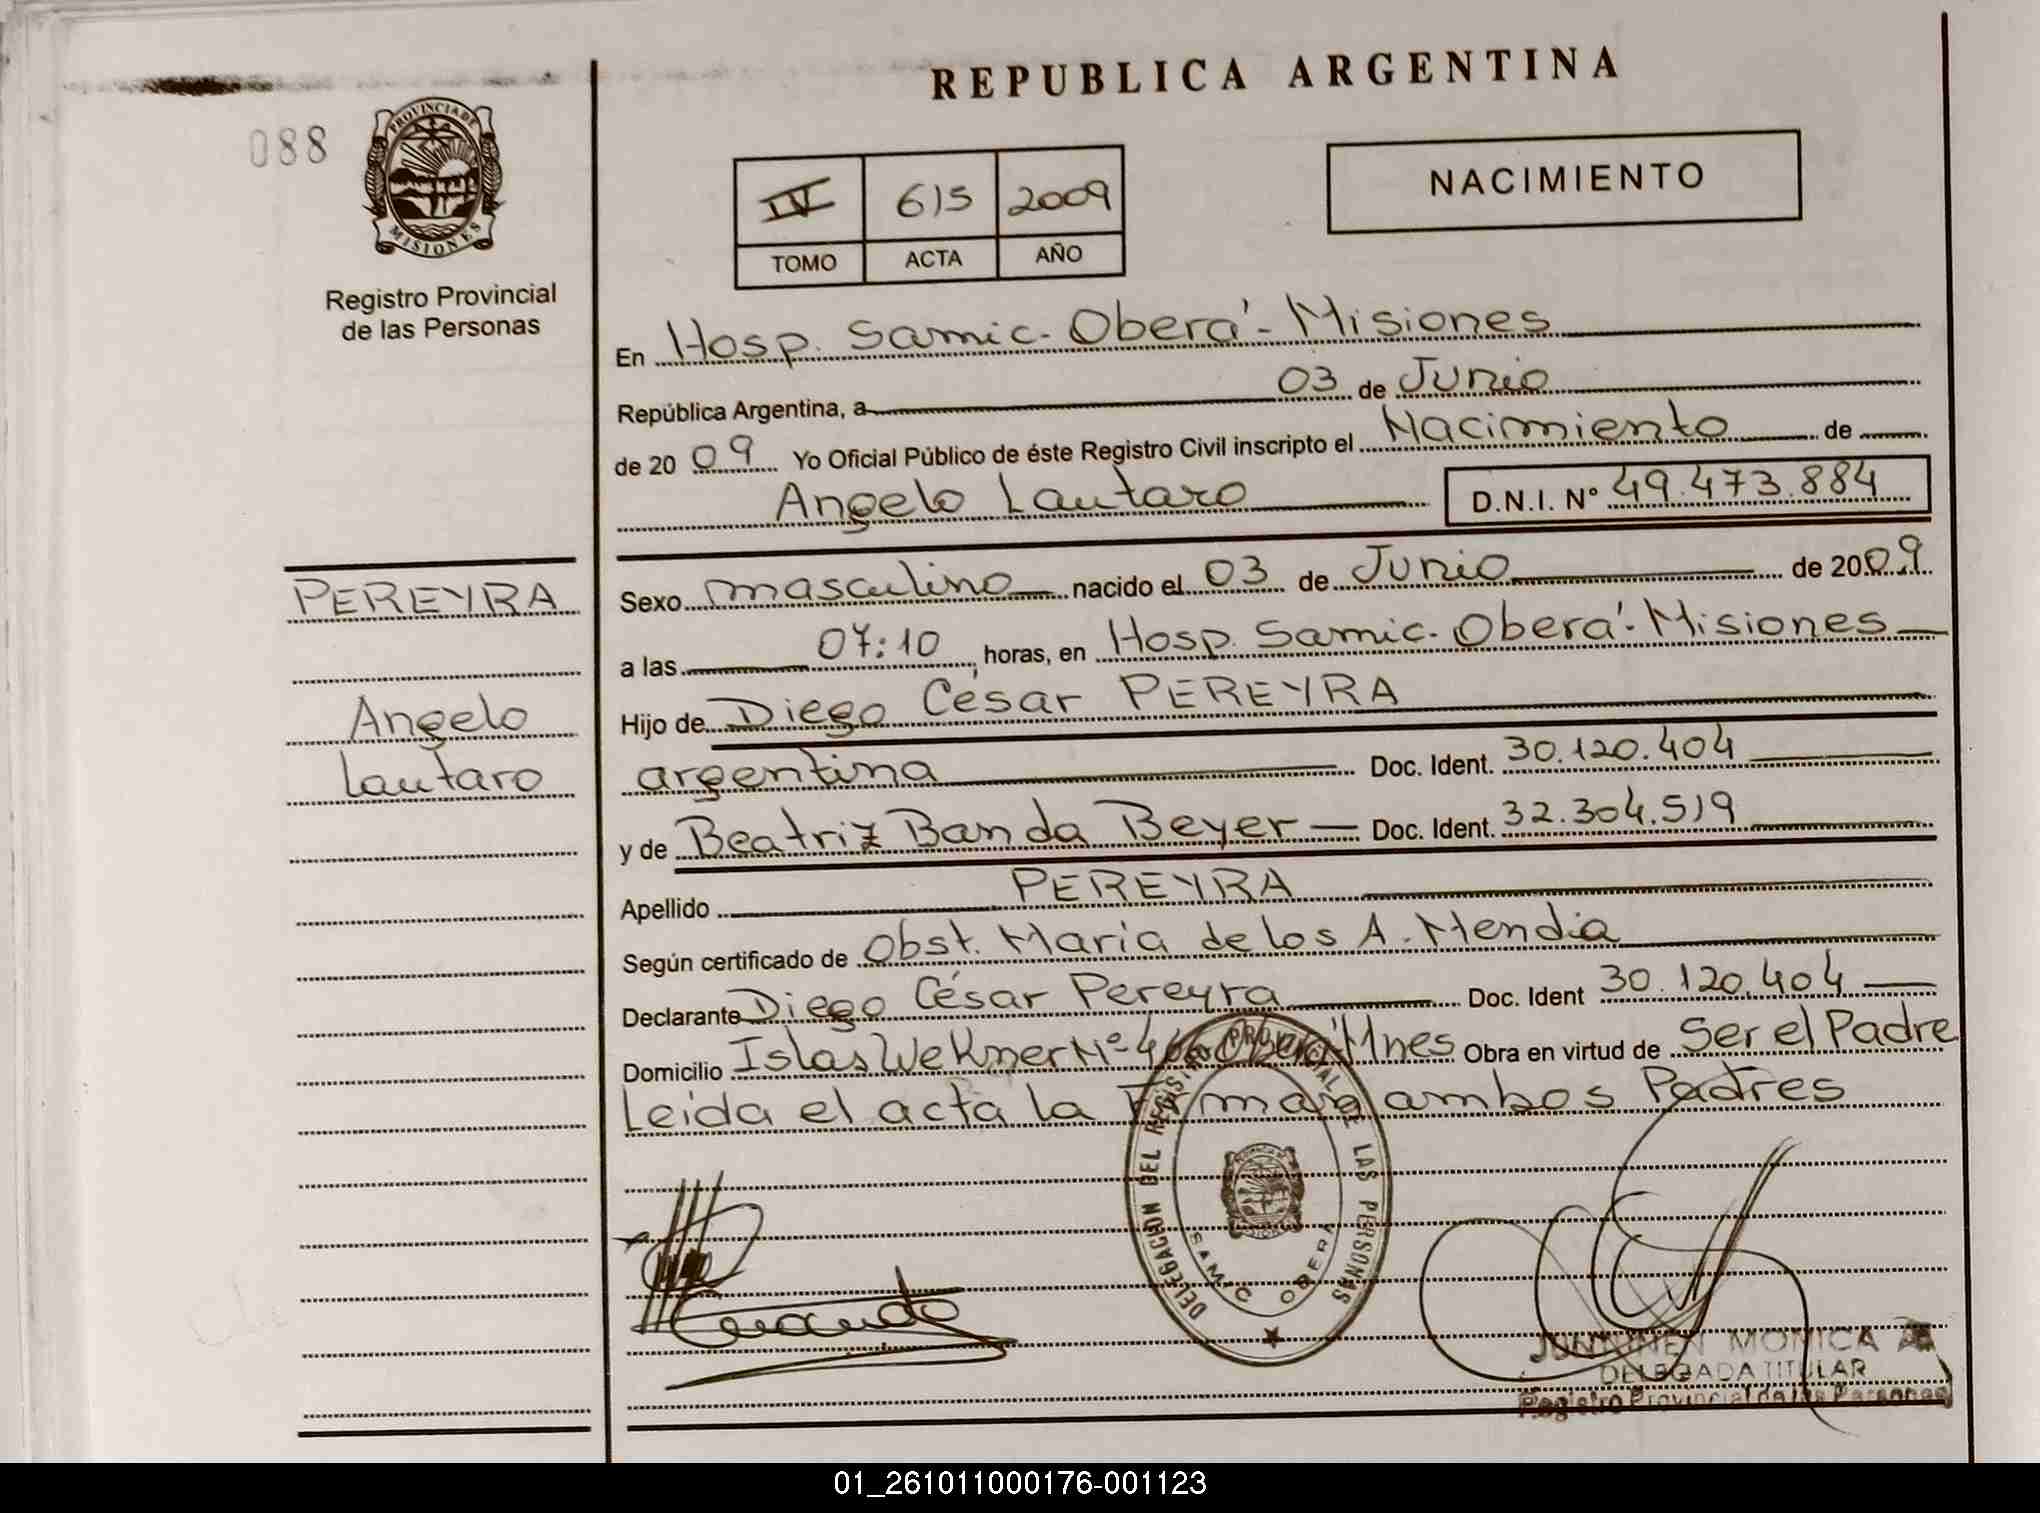 REPUBLICA ARGENTINA
088
PROVINCIA DE
MISIONES
Registro Provincial
de las Personas
IV 615 2009
TOMO ACTA AÑO
NACIMIENTO
En Hosp. Samic - Oberá - Misiones
República Argentina, a 03 de Junio
de 20 09 Yo Oficial Público de éste Registro Civil inscripto el Nacimiento de
Angelo Lautaro D.N.I. N° 49.473.884
PEREYRA
Angelo
Lautaro
Sexo masculino nacido el 03 de Junio de 2009
a las 07:10 horas, en Hosp. Samic - Oberá - Misiones
Hijo de Diego César PEREYRA
argentina Doc. Ident. 30.120.404
y de Beatriz Banda Beyer Doc. Ident. 32.304.519
Apellido PEREYRA
Según certificado de Obst. Maria de los A. Mendia
Declarante Diego César Pereyra Doc. Ident 30.120.404
Domicilio Islas N° Oberá Mnes Obra en virtud de Ser el Padre
Leida el acta la Firman ambos Padres
DELEGACION DEL REGISTRO PROVINCIAL DE LAS PERSONAS
SAMIC OBERA
MONICA
DELEGADA TITULAR
Registro Provincial de las Personas
01_261011000176-001123